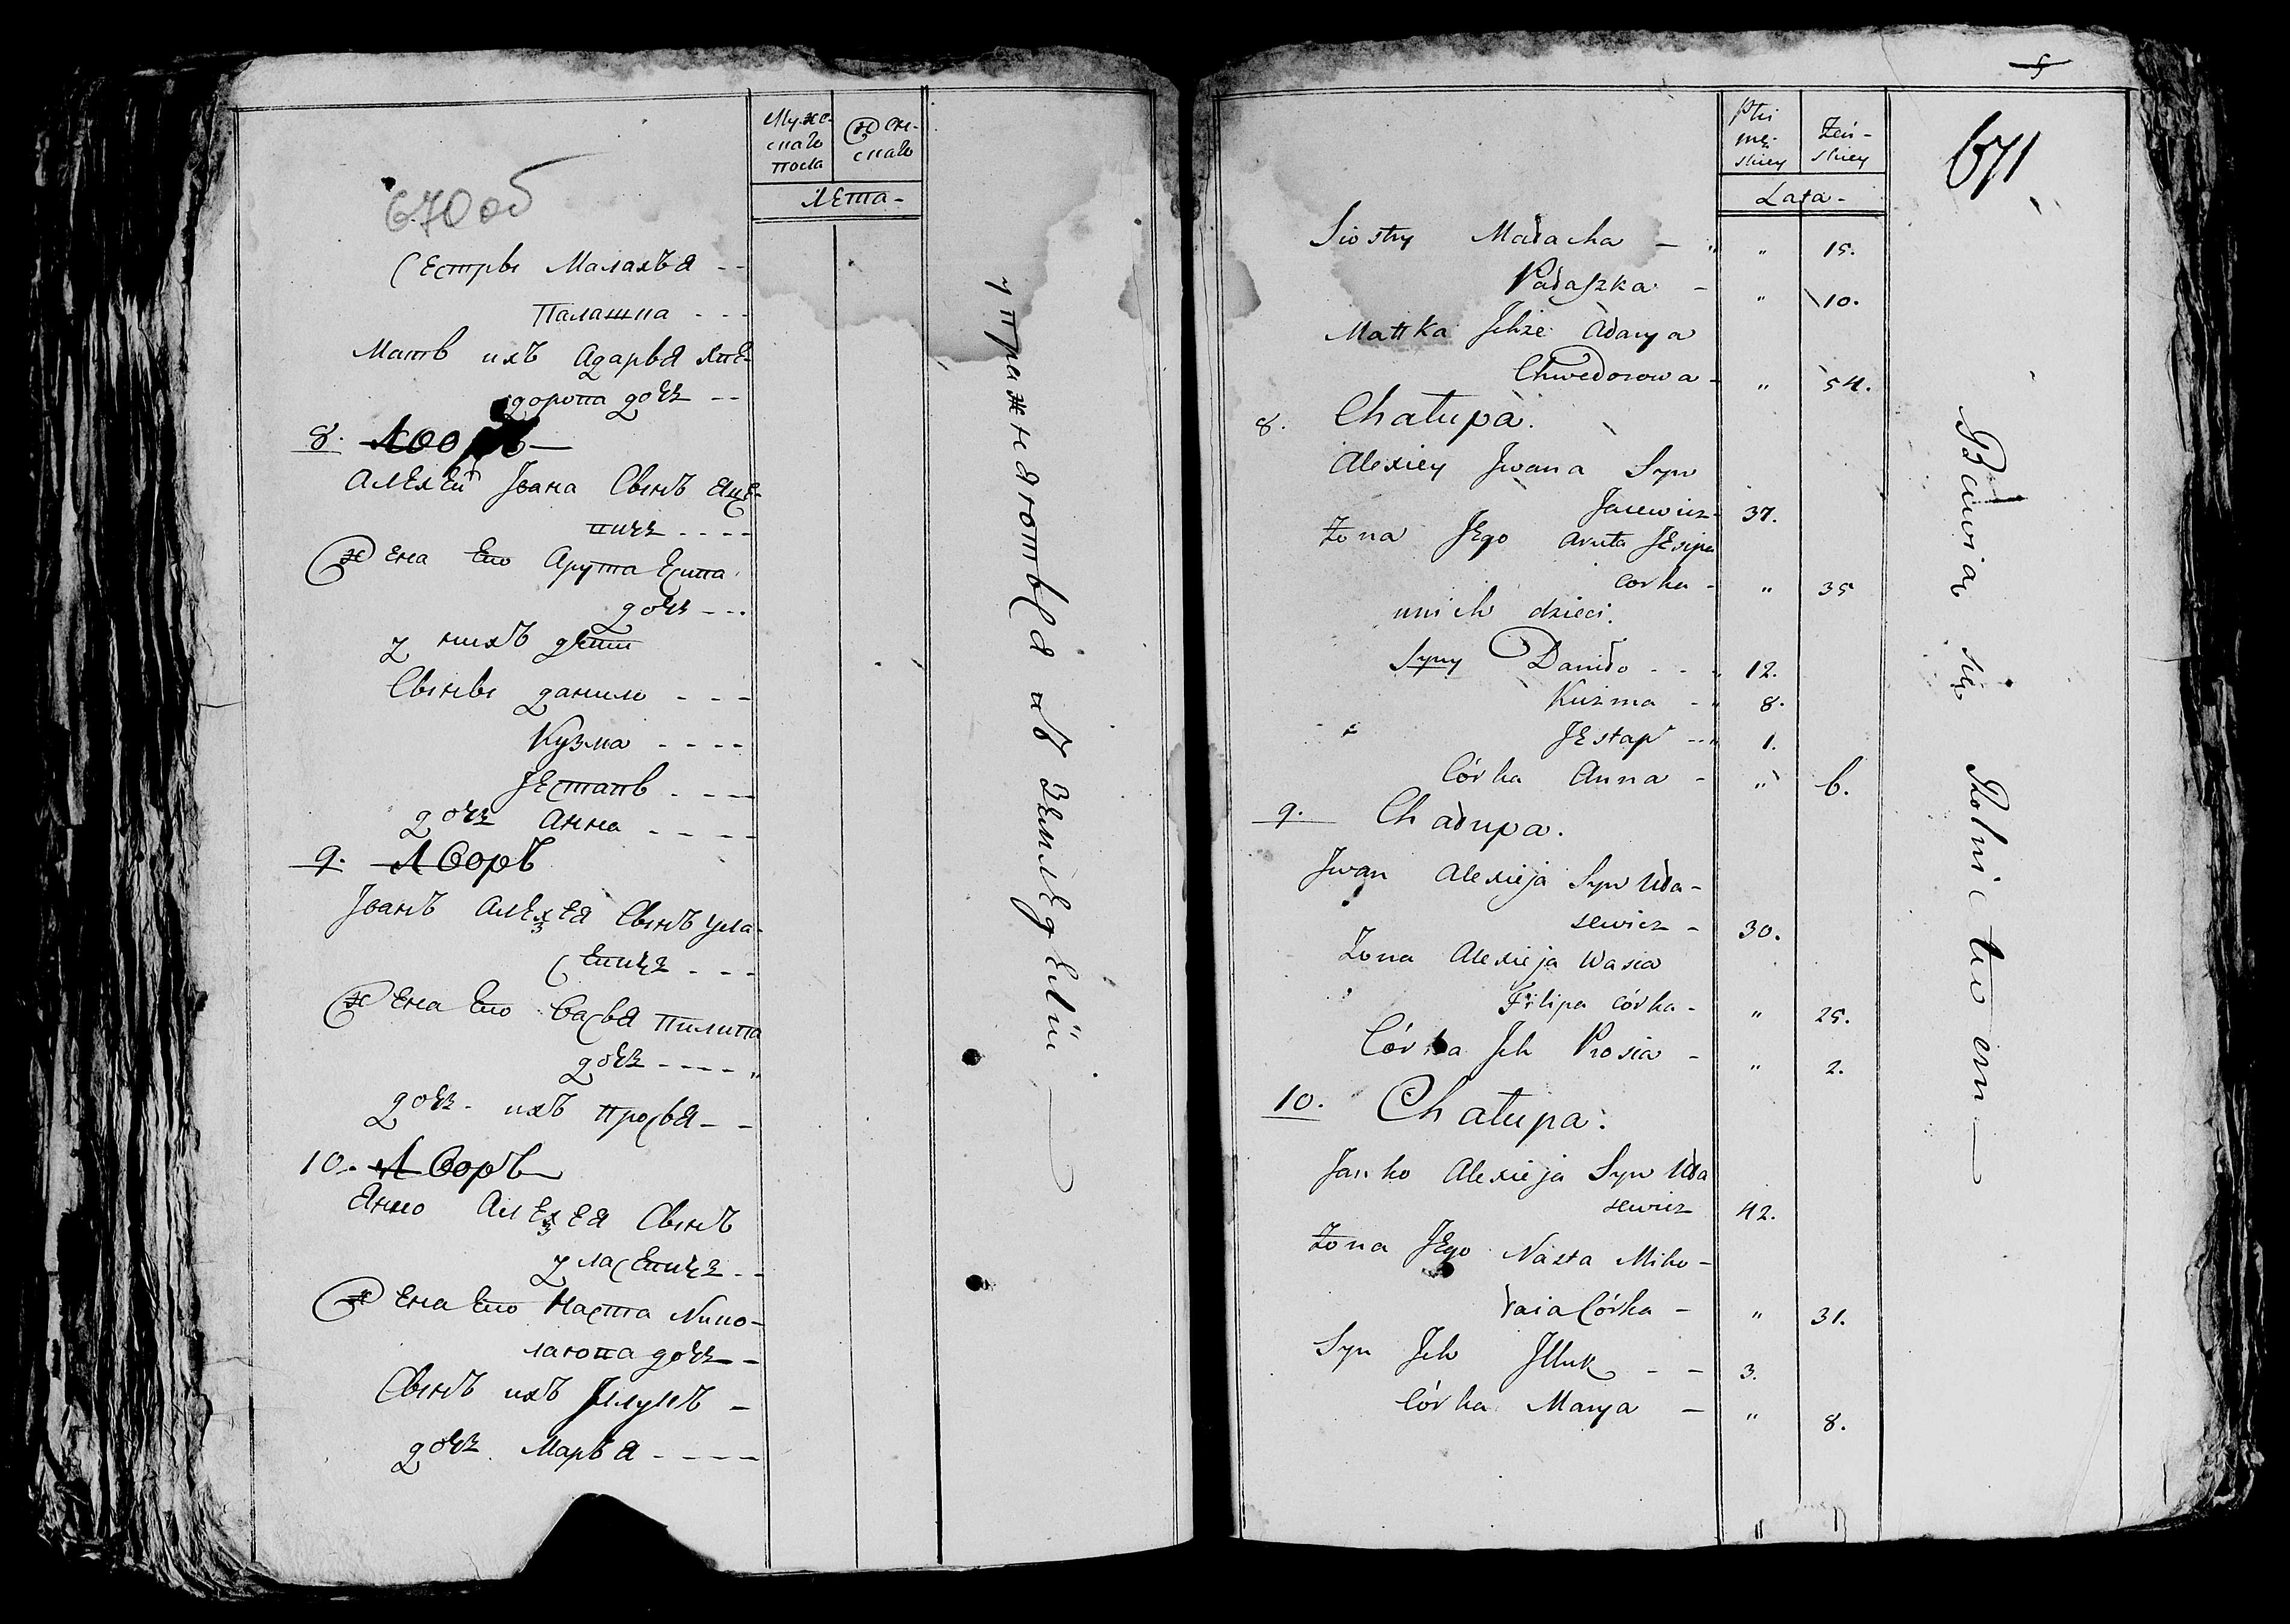 670 об
Муже-
скаго
пола
Жен-
скаго
Лета-
Сестры Малахъя - -
Палашка - - -
Мать ихъ Адарья Хве-
дорова дочь - -
8. Дворъ
Алехей Jвана Сынъ Яце-
вичь - - - -
Жена Его Арута Есипа
дочь - - -
у нихъ дети
Сыны Данило - - -
Кузма - - - -
Jестапъ - - - -
дочь Анна - - - -
9. Дворъ
Jванъ Алехея Сынъ Ула-
севичь - - -
Жена Его Васья Пилипа
дочь - - - - "
дочь - ихъ Просья - -
10. Дворъ
Янко Алехея Сынъ
Уласевичь - -
Жена Его Наста Нико-
лаюва дочь - -
Сынъ ихъ Jллукъ -
дочь Марья - - - -
упражняются въ земледелiи
5
671
Płci
mę-
skiey
Żeń-
skiey
Lata -
Siostry Małacha - " " 15.
Pałaszka - " 10.
Mattka Jchże Adarya
Chwedorowa - " 54.
8. Chałupa.
Alexiey Jwana Syn
Jacewicz - 37.
Żona Jego Aruta Jesipa
corka - " 35
unich dzieci:
Syny Daniło - - " 12.
Kuzma - " 8.
Jestap - - " 1.
Córka Anna - " 6.
9. Chałupa.
Jwan Alexieja Syn Uła-
sewicz - 30.
Żona Alexieja Wasia
Filipa córka - " 25.
Córka Jch Prosia - " 2.
10. Chałupa:
Janko Alexieja Syn Uła
sewicz 42.
Żona Jego Nasta Miko-
łaia Córka - " 31.
Syn Jch Jlluk - - 3.
Córka Marya - " 8.
Bawią się Rolnictwem